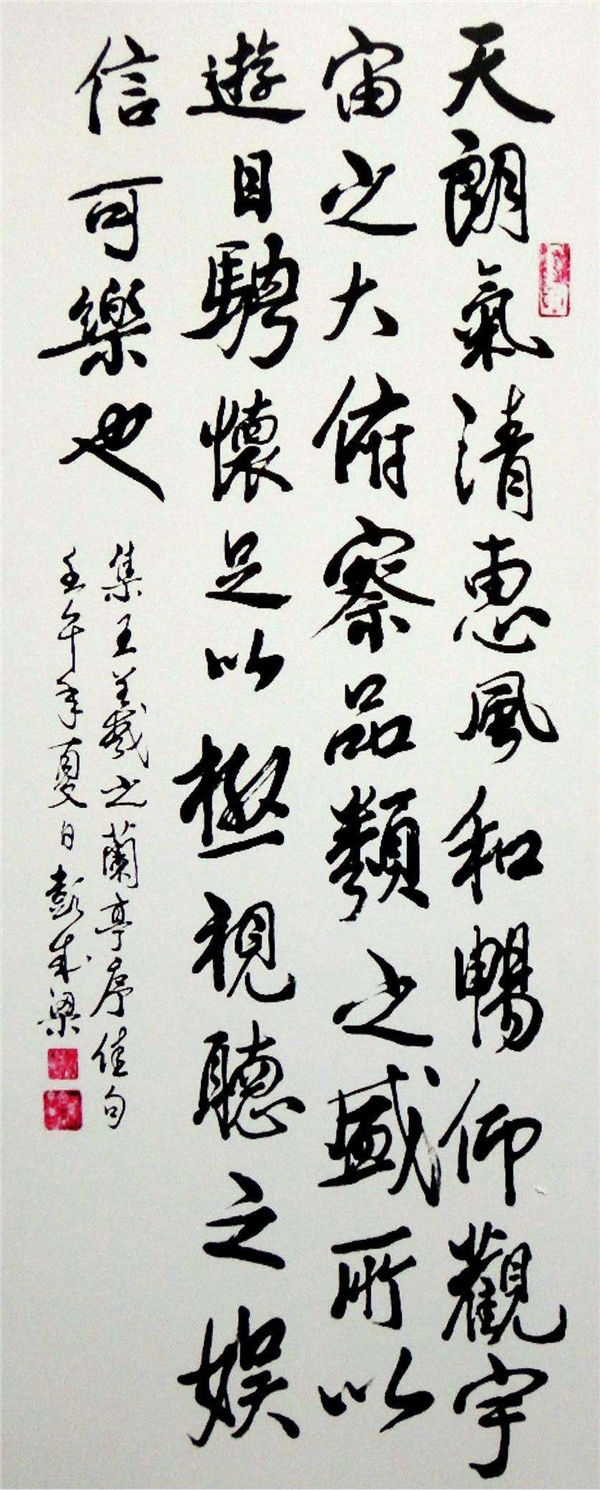 天朗氣清惠風和暢仰觀宇
宙之大俯察品類之盛所以
遊目騁懷足以極視聽之娛
信可樂也
集王羲之蘭亭序佳句
壬午年夏日彭成梁